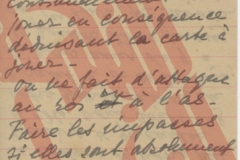 jouer en conséquence
déduisant la carte à
jouer -
on ne fait d'attaque
au roi et à l'as -
Faire les impasses
si elles sont absolument